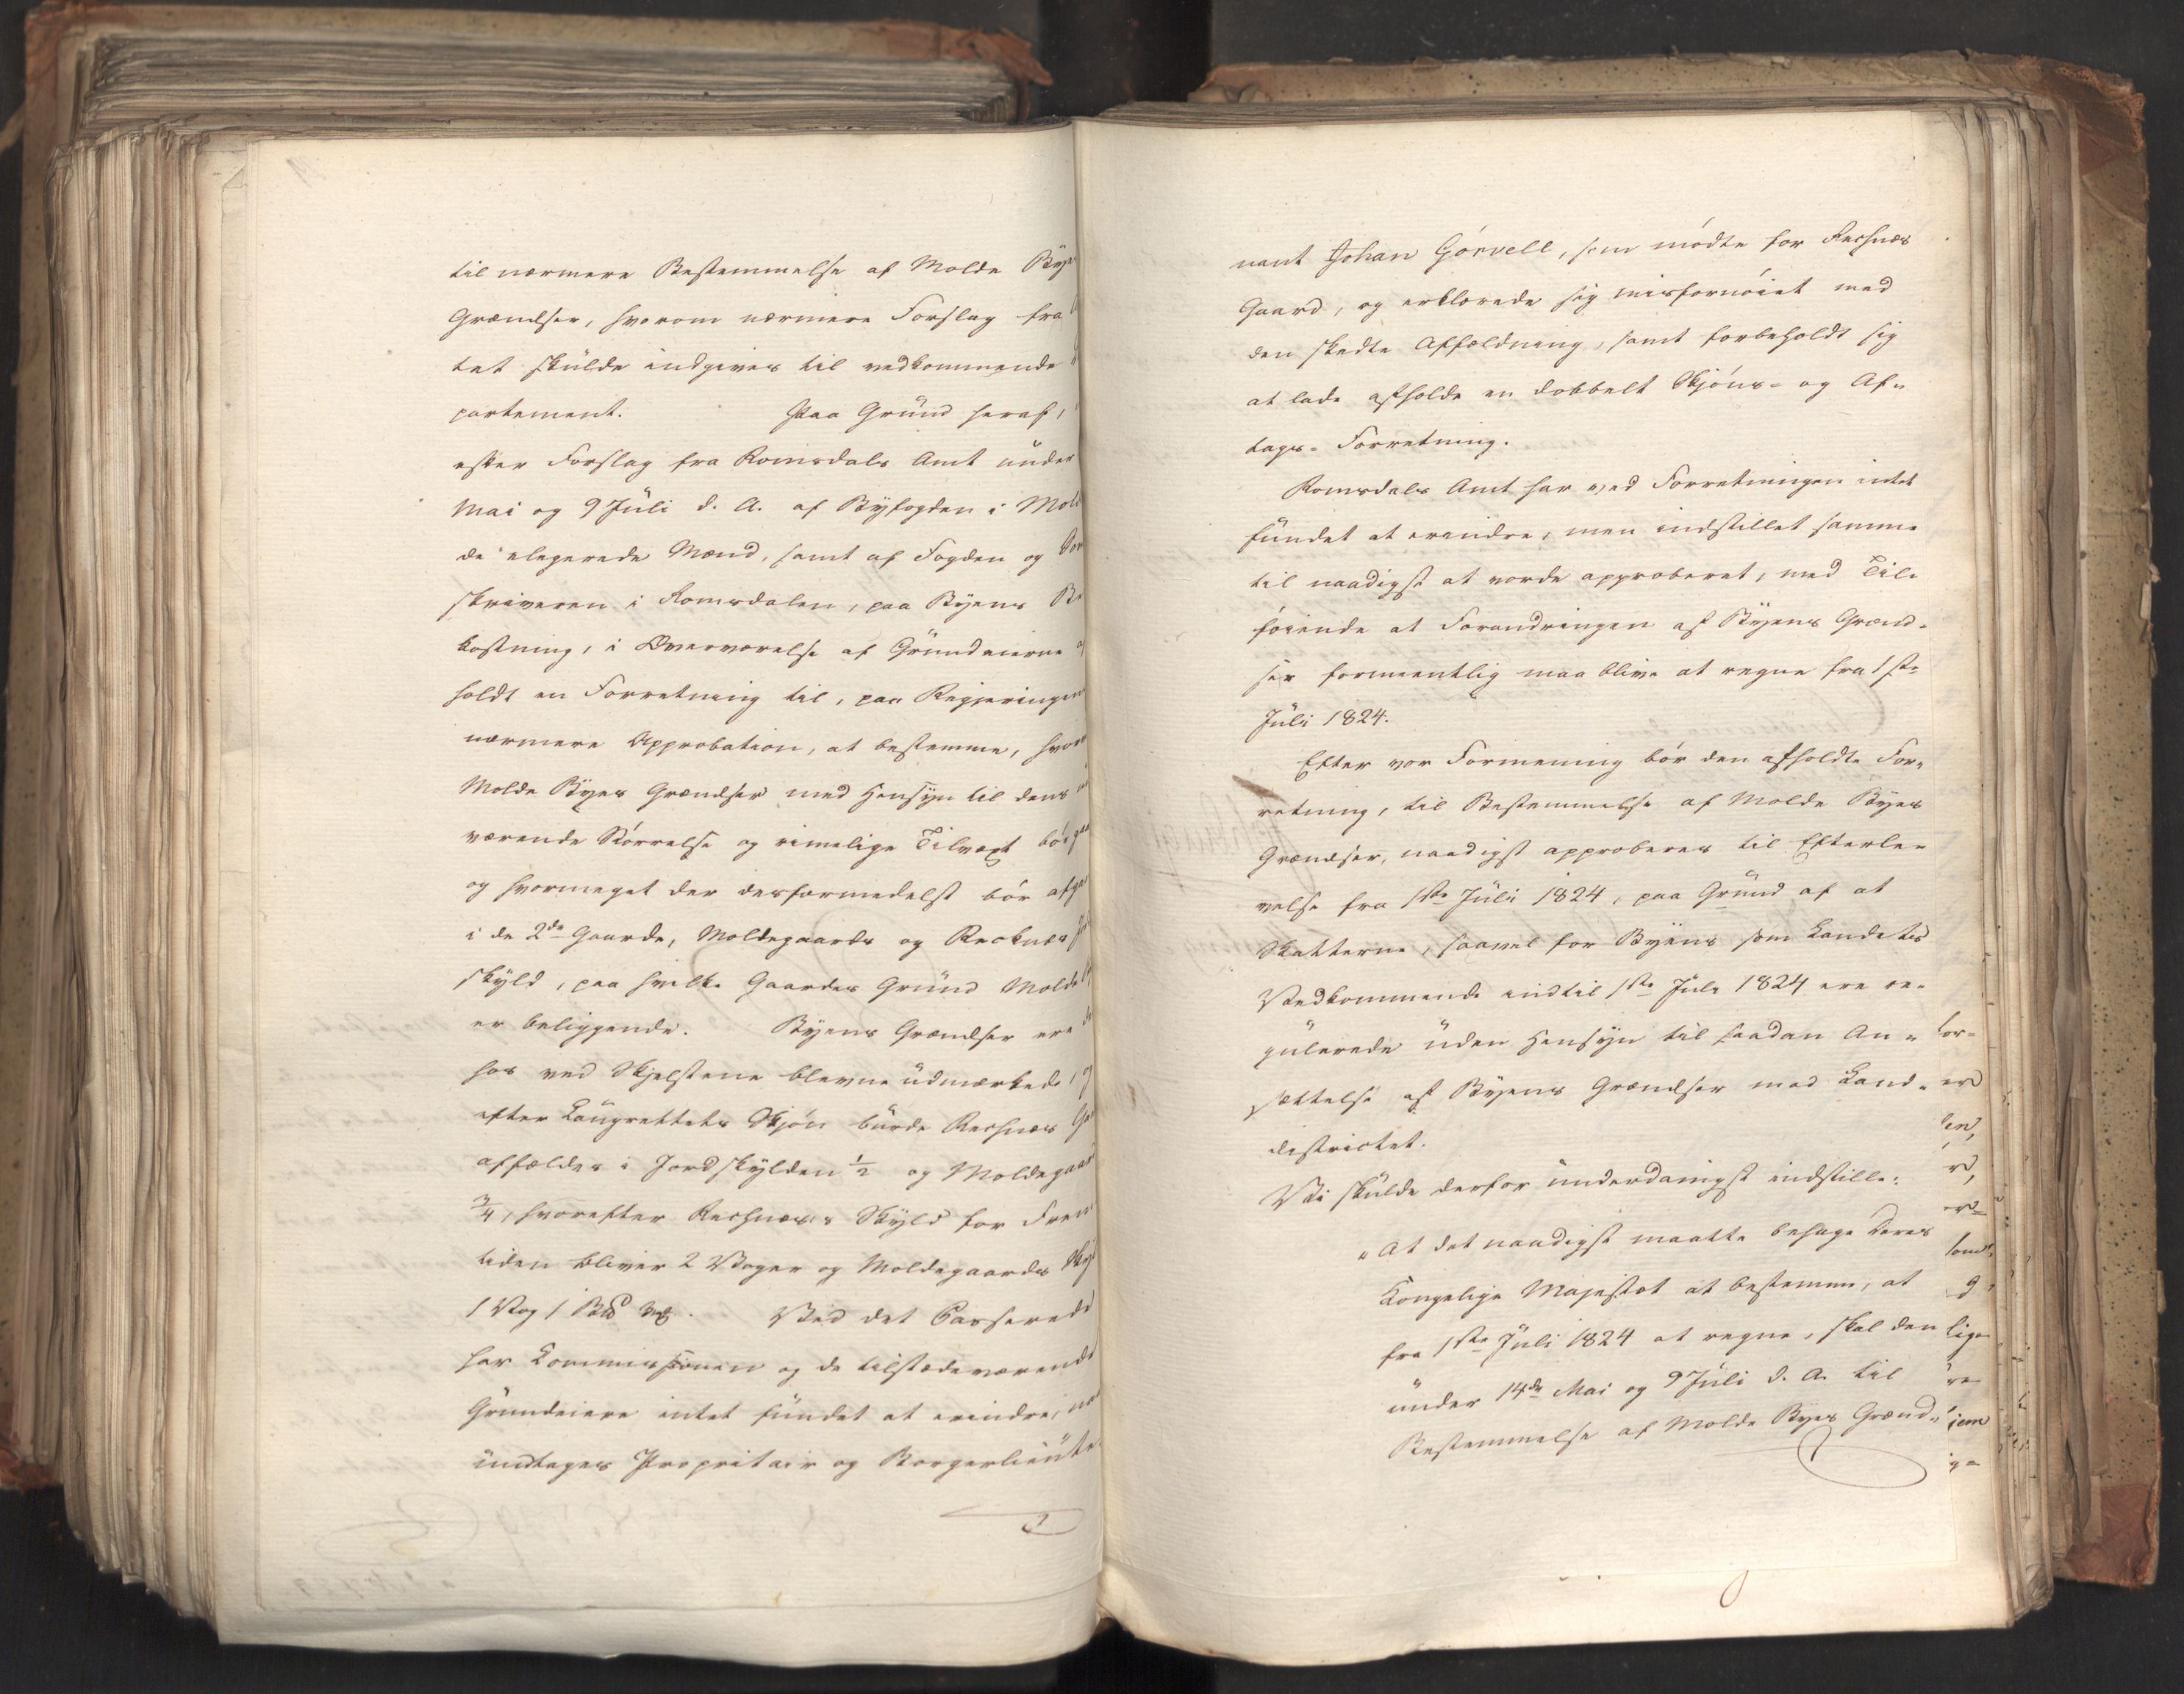 til nærmere Bestemmelse af Molde Bÿe
Grændser, hvorom nærmere Forslag fra
tet skülde indgives til vedkommende
partement. Paa Gründ heraf,
efter Forslag fra Romsdals Amt ünder
Mai og 9 Jüli d. A. af Bÿfogden i Mol
de elegerede Mænd, samt af Fogden og
skriveren i Romsdalen, paa Bÿens Be
kostning, i Overværelse af Gründeierne
holdt en Forretning til, paa Regjeringen
nærmere Approbation, at bestemme, hvor
Molde Bÿes Grændser med Hensÿn til dens
værende Störrelse og rimelige Tilvæxt bör
og hvormeget der desformedelst bör afga
i de 2de Gaarde, Moldegaards og Recknæs
skÿld, paa hvilke Gaardes Gründ Molde
er beliggende. Bÿens Grændser ere
hos ved Skjelstene blevne üdmærkede, og
efter Laügrettets Skjön bürde Rechnæs Ga
affældes i Jordskÿlden 1/2 og Moldegaar
3/4, hvorefter Rechnæs's Skÿld for Frem
tiden bliver 2 Voger og Moldegaards Skÿ
1 Vog 1 Bpd. Ved det Passerede
har Commissionen og de tilstedeværende
Gründeiere intet fündet at erindre,
ündtages Propritair og Borgerlieüte
nant Johan Görvell, som mödte for Rechnæs
Gaard, og erklærede sig misfornöiet med
den skedte Affældning, samt forbeholdt sig
at lade afholde en dobbelt Skjöns- og Af-
tags- Forretning.
Romsdals Amt har ved Forretningen intet
fündet at erindre, men indstillet samme
til naadigst at vorde approberet, med Til-
föiende at Forandringen af Bÿens Grænd-
ser formeentlig maa blive at regne fra 1ste
Jüli 1824.
Efter vor Formening bör den afholdte For-
retning, til Bestemmelse af Molde Bÿes
Grændser, naadigst approberes til Efterle-
velse fra 1ste Jüli 1824, paa Gründ af at
Skatterne, saavel for Bÿens som Landets
Vedkommende indtil 1ste Jüli 1824 ere re-
gülerede üden Hensÿn til saadan An-
sættelse af Bÿens Grændser mod Land-
districtet.
Vi skülde derfor ünderdanigst indstille:
"At det naadigst maatte behage Deres
Kongelige Majestæt at bestemme, at
fra 1ste Jüli 1824 at regne, skal den
ünder 14de Mai og 9 Jüli d. A. til
Bestemmelse af Molde Bÿes Grænd-